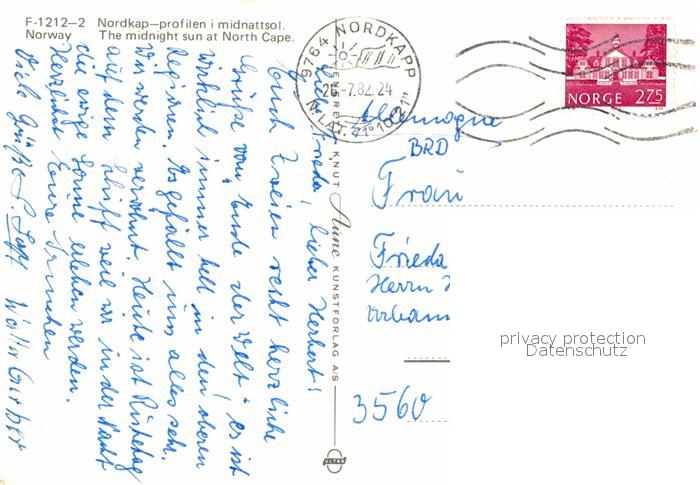 F-1212-2 Nordkap-profilen i midnattsol.
Norway The midnight sun at North Cape.
9764 NORDKAPP
26.-7.82.24
N.LAT. 71°10'21"
NORGE 275
KNUT Aune KUNSTFORLAG A/S
Liebe Frieda, lieber Herbert!
Euch Zweien recht herzliche
Grüße vom "Ende der Welt". es ist
wirklich immer hell in den oberen
Regionen. Es gefällt uns alles sehr.
Wir werden verwöhnt. Heute ist Ruhetag
auf dem Schiff weil wir in der Nacht
die ewige Sonne erleben werden.
Herzlichst Eure
Viele Grüße
Allemagne
BRD
Frau
Frieda
Herrn
3560
privacy protection
Datenschutz